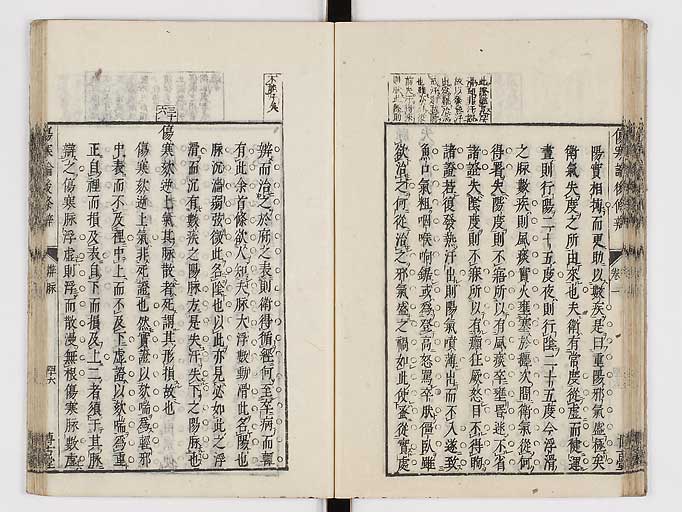 陽實相搏而更助以數疾是曰重陽邪氣盛極矣
衛氣失度之所由來也夫衛有常度從虛而健運
晝則行陽二十五度夜則行陰二十五度今浮滑
之脈數疾則風痰實火壅塞於軀次間衛氣從何
得費失陽度則不寤所以有風痰卒壅畏迷不省
諸證失陰度則不寐所以有癲狂厥怒目不得眴
諸證若復發熱汗出則陽氣噴薄出而不入遂致
魚口氣粗咽喉响鋸或為登高怒罵卒厥僵臥雖
欲治之何從治之邪氣盛之禍如此使蚤從實處
傷寒論後條辨
卷一
辨而治之於所之表則衛得循經何至卒病而難
有此余首條欲人知夫脈大浮數動滑此名陽也
脈沉濇弱弦微此名陰也以此亦見必如此之浮
滑而沉有數疾之陽脈方是失汗失下之陽脈也
三十六
傷寒欬逆上氣其脈散者死謂其形損故也
傷寒欬逆上氣非死證也然實證以欬喘為輕邪
中表而不及裡中上而不及下虛證以欬喘為重
正自裡而損及表自下而損及上二者須于其脈
辯之傷寒脈浮虛則浮而散漫無根傷寒脈數虛
傷寒論後條辨
辨脈